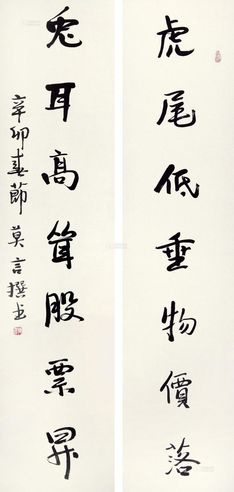 虎尾低垂物價落
兔耳高耸股票昇
辛卯春節莫言撰书